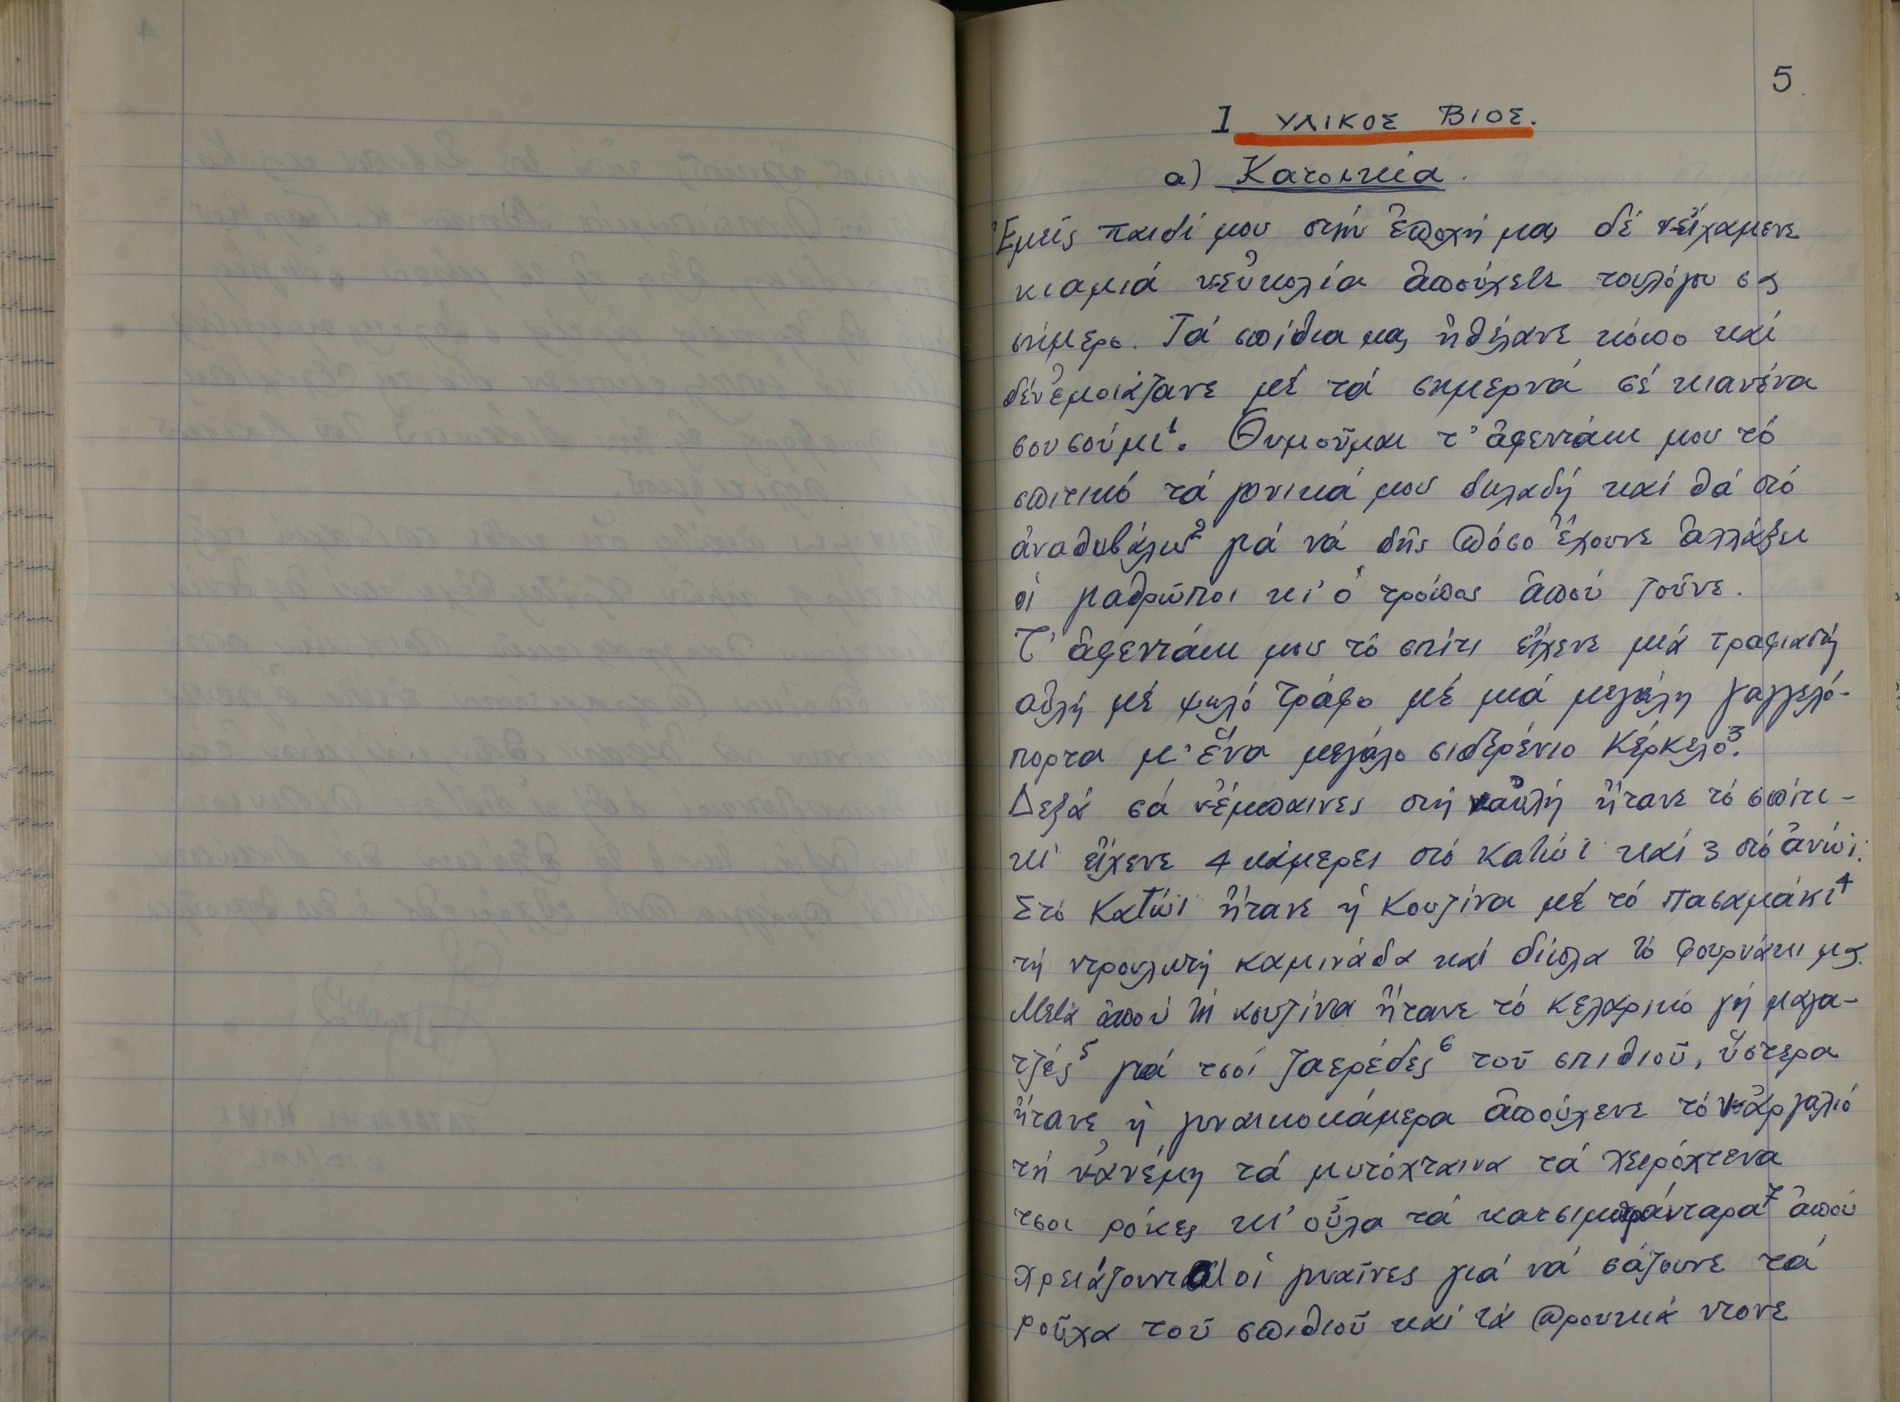 5
I ΥΛΙΚΟΣ ΒΙΟΣ.
α) Κατοικία.
Ἐμεῖς παιδί μου στήν ἐποχή μας δέ νείχαμενε
κιαμιά νεὐκολία ἁπούχετε τουλόγου σας
σήμερο. Τά σπίθια μας ἠθέλανε κόπο καί
δένἐμοιάζανε μέ τά σημερνά σέ κιανένα
σουσούμι¹. Θυμοῦμαι τ' ἀφεντάκι μου τό
σπιτικό τά γονικά μου δηλαδή καί θά στό
ἀναθυβάλω² γιά νά δῆς πόσο ἔχουνε ἀλλάξει
οἱ γιαθρῶποι κι' ὁ τρόπος ἁπού ζοῦνε.
Τ' ἀφεντάκι μου τό σπίτι εἴχενε μιά τραφιαστή
αὐλή μέ ψηλό τράφο μέ μιά μεγάλη γαγγελό-
πορτα μ' ἕνα μεγάλο σιδερένιο κέρκελο³.
Δεξά σά νἐμπαινες στή ναὐλή ἤτανε τό σπίτι-
κι' εἴχενε 4 κάμερες στό κατώϊ καί 3 στό ἀνώϊ.
Στό κατώι ἤτανε ἡ κουζίνα μέ τό πασαμάκι⁴
τή ντρουλωτή καμινάδα καί δίπλα τό φουρνάκι μας.
Μετά ἀπού τή κουζίνα ἤτανε τό κελαρικό γή μαγα-
τζές⁵ γιά τσοί ζαερέδες⁶ τοῦ σπιθιοῦ, ὕστερα
ἤτανε ἡ γυναικοκάμερα ἁπούχενε τό νἀργαλιό
τή νἀνέμη τά μυτόχταινα τά χειρόχτενα
τσοι ρόκες κι' οὖλα τά κατσιμπράνταρα⁷ ἁπού
χρειάζουνται οἱ γυναῖνες γιά νά σάζουνε τά
ροῦχα τοῦ σπιθιοῦ καί τά προυκιά ντονε